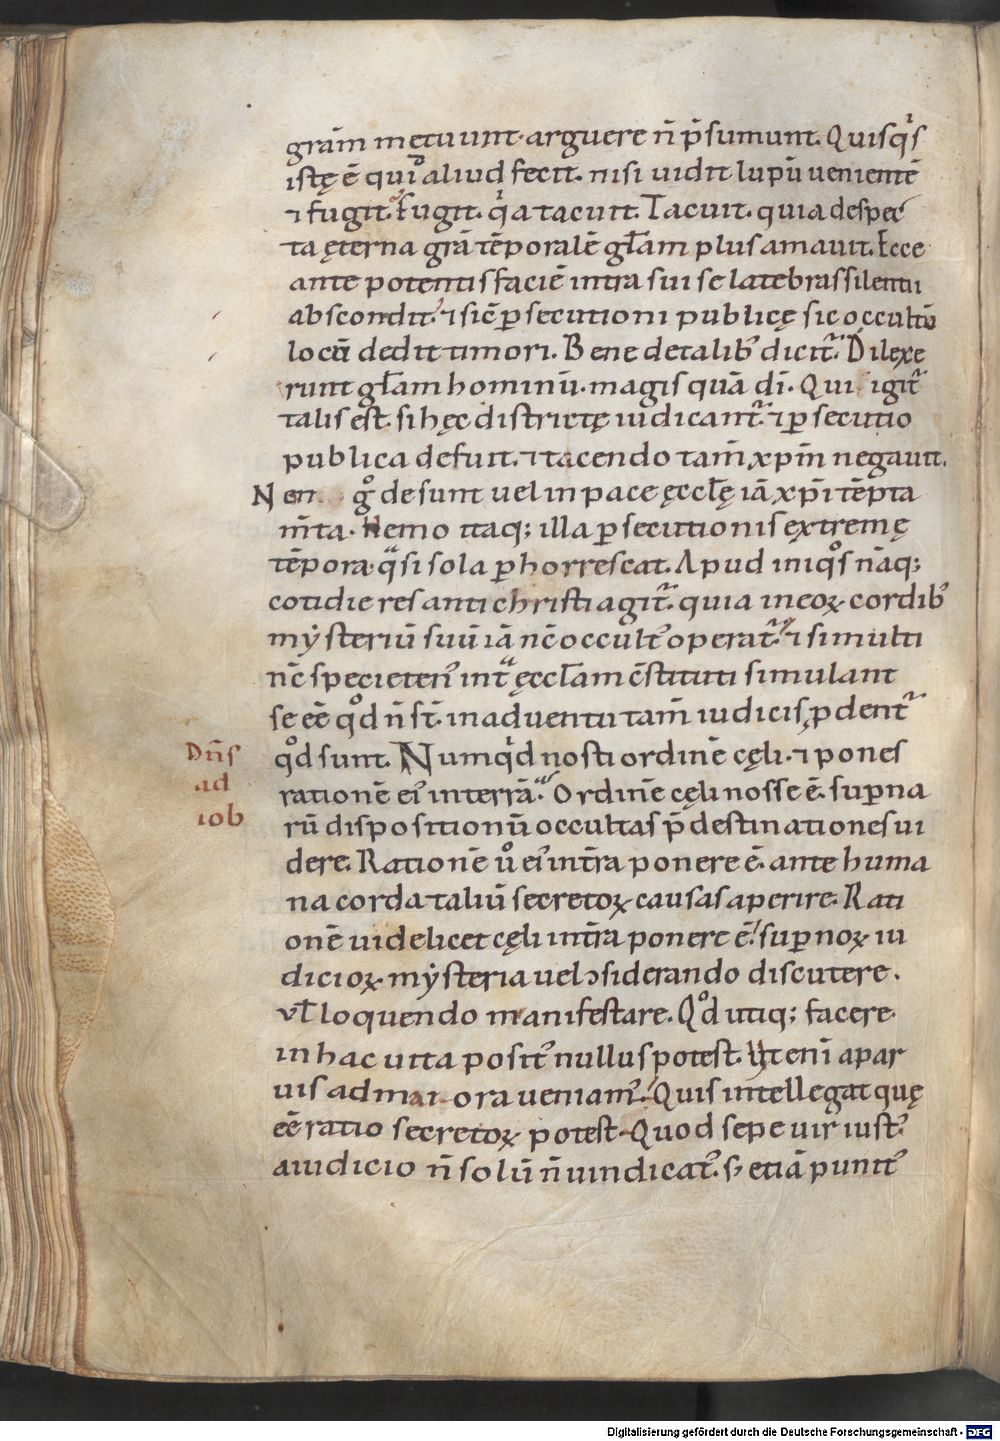 grām metuunt· arguere n̄ p̄sumunt. Quisqͥs
istę ē quiͩ aliud fecit. nisi uidit lupū uenientē
⁊ fugit. Fugit. qͥa tacuit. Tacuit. quia despec
ta ęterna grā tēporalē gl̄am plus amauit. Ecce
ante potentis faciē intra sui se latebras silentii
abscondit. ⁊ sic̄ ꝑsecutioni publicę sic occultū
locū dedit timori. Bene de talib; dicit᷑. Dilexe
runt gl̄am hominū· magis quā dī. Qui igit᷑
talis est. si hęc districtę iudicant᷑. ⁊ ꝑsecutio
publica defuit. ⁊ tacendo tam̄ xpm̄ negauit.
Non gͦ desunt uel in pace ęccl̄ę iā xp̄i tēpta
m̄ta. Nemo itaq; illa ꝑsecutionis extremę
tēpora· qͣsi sola ꝑhorrescat. Apud iniqͦs nāq;
cotidie res antichristi agit᷑. quia in eoꝝ cordib;
mẏsteriū suū iā nc̄ occulte operat᷑. ⁊ si multi
nc̄ specieten᷒ intͣ ęccl̄am c̄stituti simulant
se eē qͦd n̄ st̄. in aduentu tam̄ iudicis, ꝓdent᷑
qͦd sunt. Numqͥd nosti ordinē cęli· ⁊ pones
rationē ei᷒ in terrā. Ordinē cęli nosse ē. suꝑna
rū dispositionū occultas p̄destinationes ui
dere. Rationē uͦ ei᷒ in t̄ra ponere ē. ante huma
na corda taliū secretoꝝ causas aperire. Rati
onē uidelicet cęli in t̄ra ponere ē. suꝑnoꝝ iu
dicioꝝ mẏsteria uel ↄsiderando discutere.
vl̄ loquendo manifestare. Qͦd utiq; facere
in hac uita posit᷒ nullus potest. Ut eni a par
uis ad maiora ueniam᷒. Quis intellegat quę
eē ratio secretoꝝ potest. Quod sepe uir iust᷒
a iudicio n̄ solū n̄ uindicat᷒. s; etiā punit᷒
Dn̄s
ad
iob
Digitalisierung gefördert durch die Deutsche Forschungsgemeinschaft - DFG